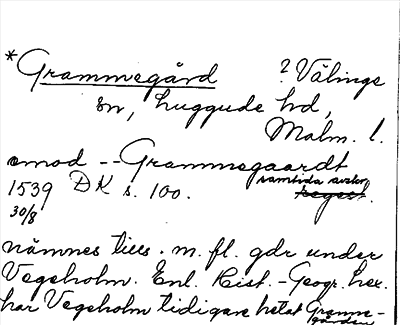 *Grammegård ? Välinge
sn, Luggude hd,
Malm. l.
omod -- Grammegaardt
1539 DK s. 100. samtida avskr.
30/8
nämnes tills. m. fl. gdr under
Vegeholm. Enl. Hist.-Geogr. Lex.
har Vegeholm tidigare hetat Gramme-
gården